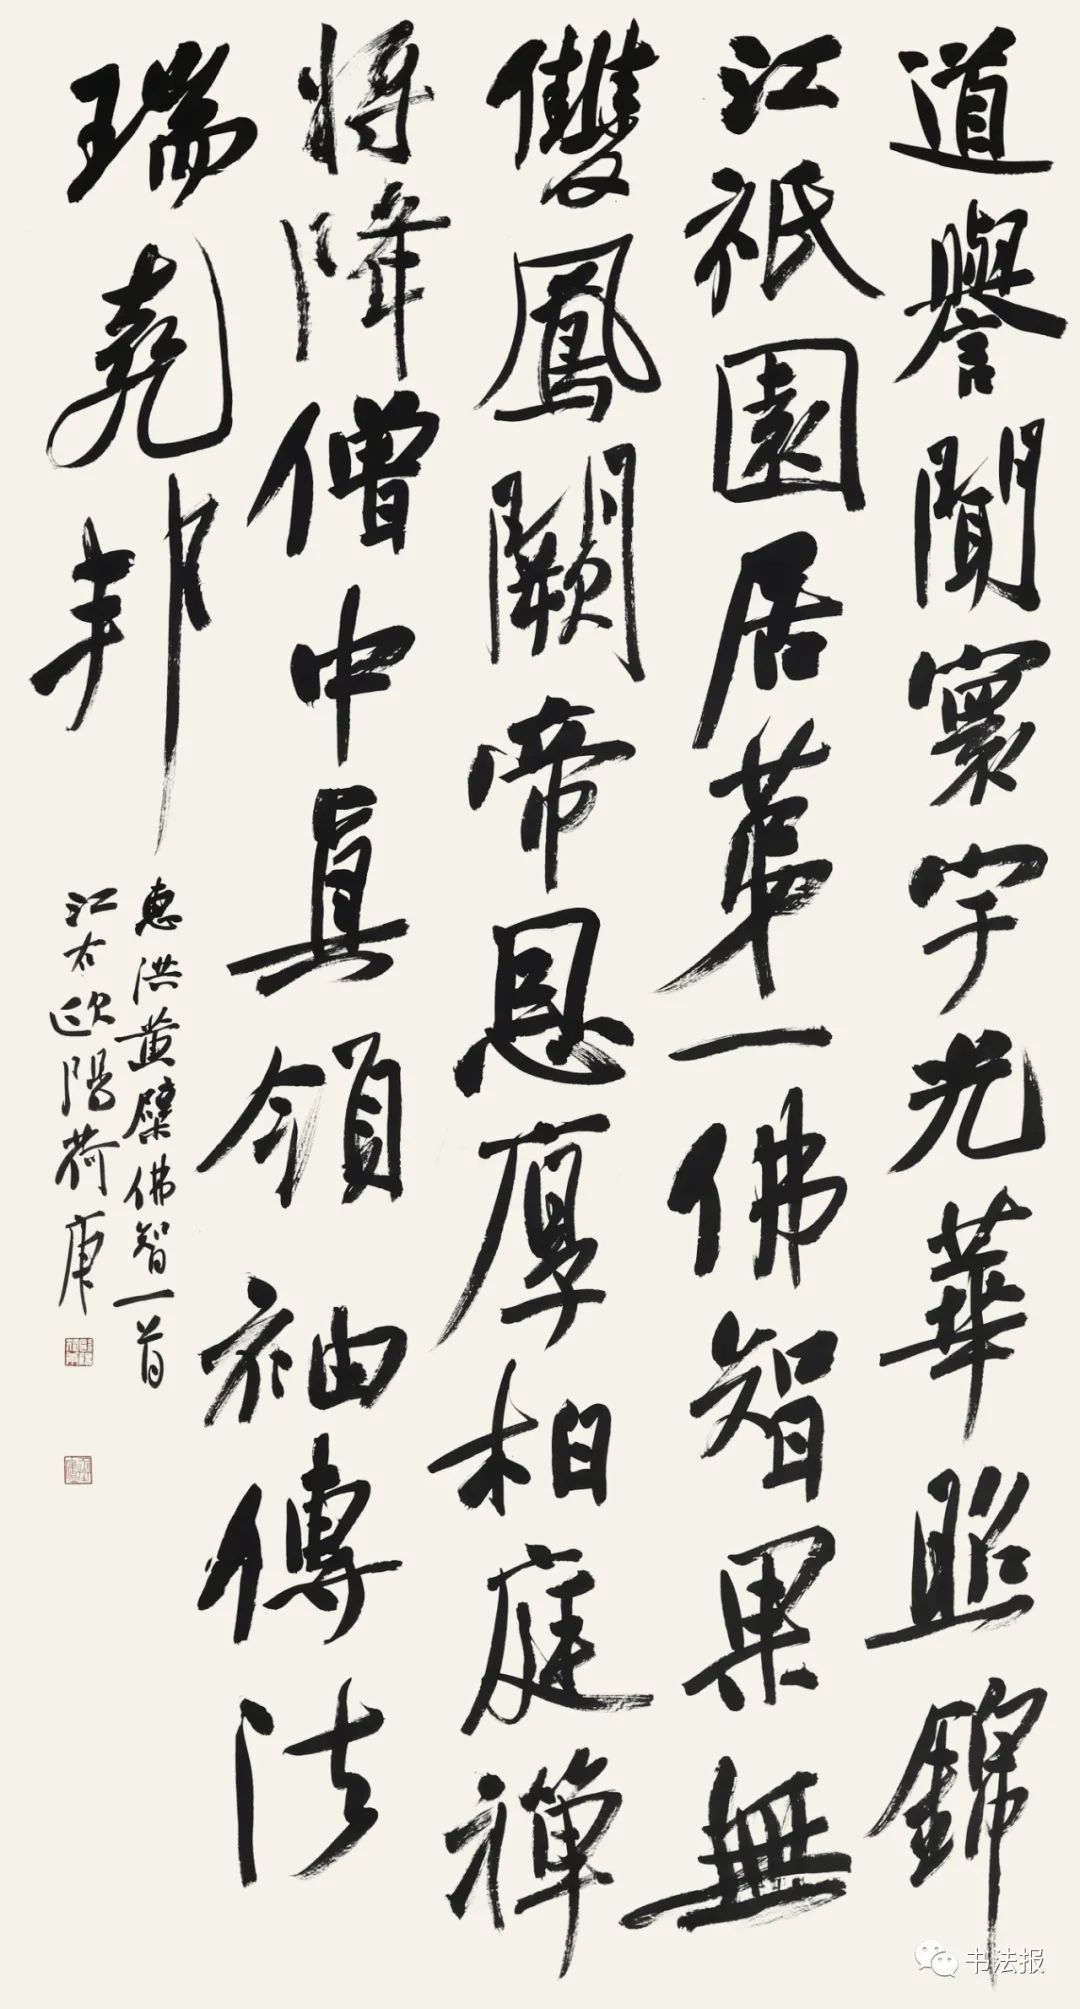 道譽聞寰宇光華照錦
江祇園居第一佛智果無
雙鳳闕帝恩厚相庭禪
將降僧中真領袖傳法
瑞堯邦
惠洪黄檗佛智一首
江右歐陽荷庚
书法报